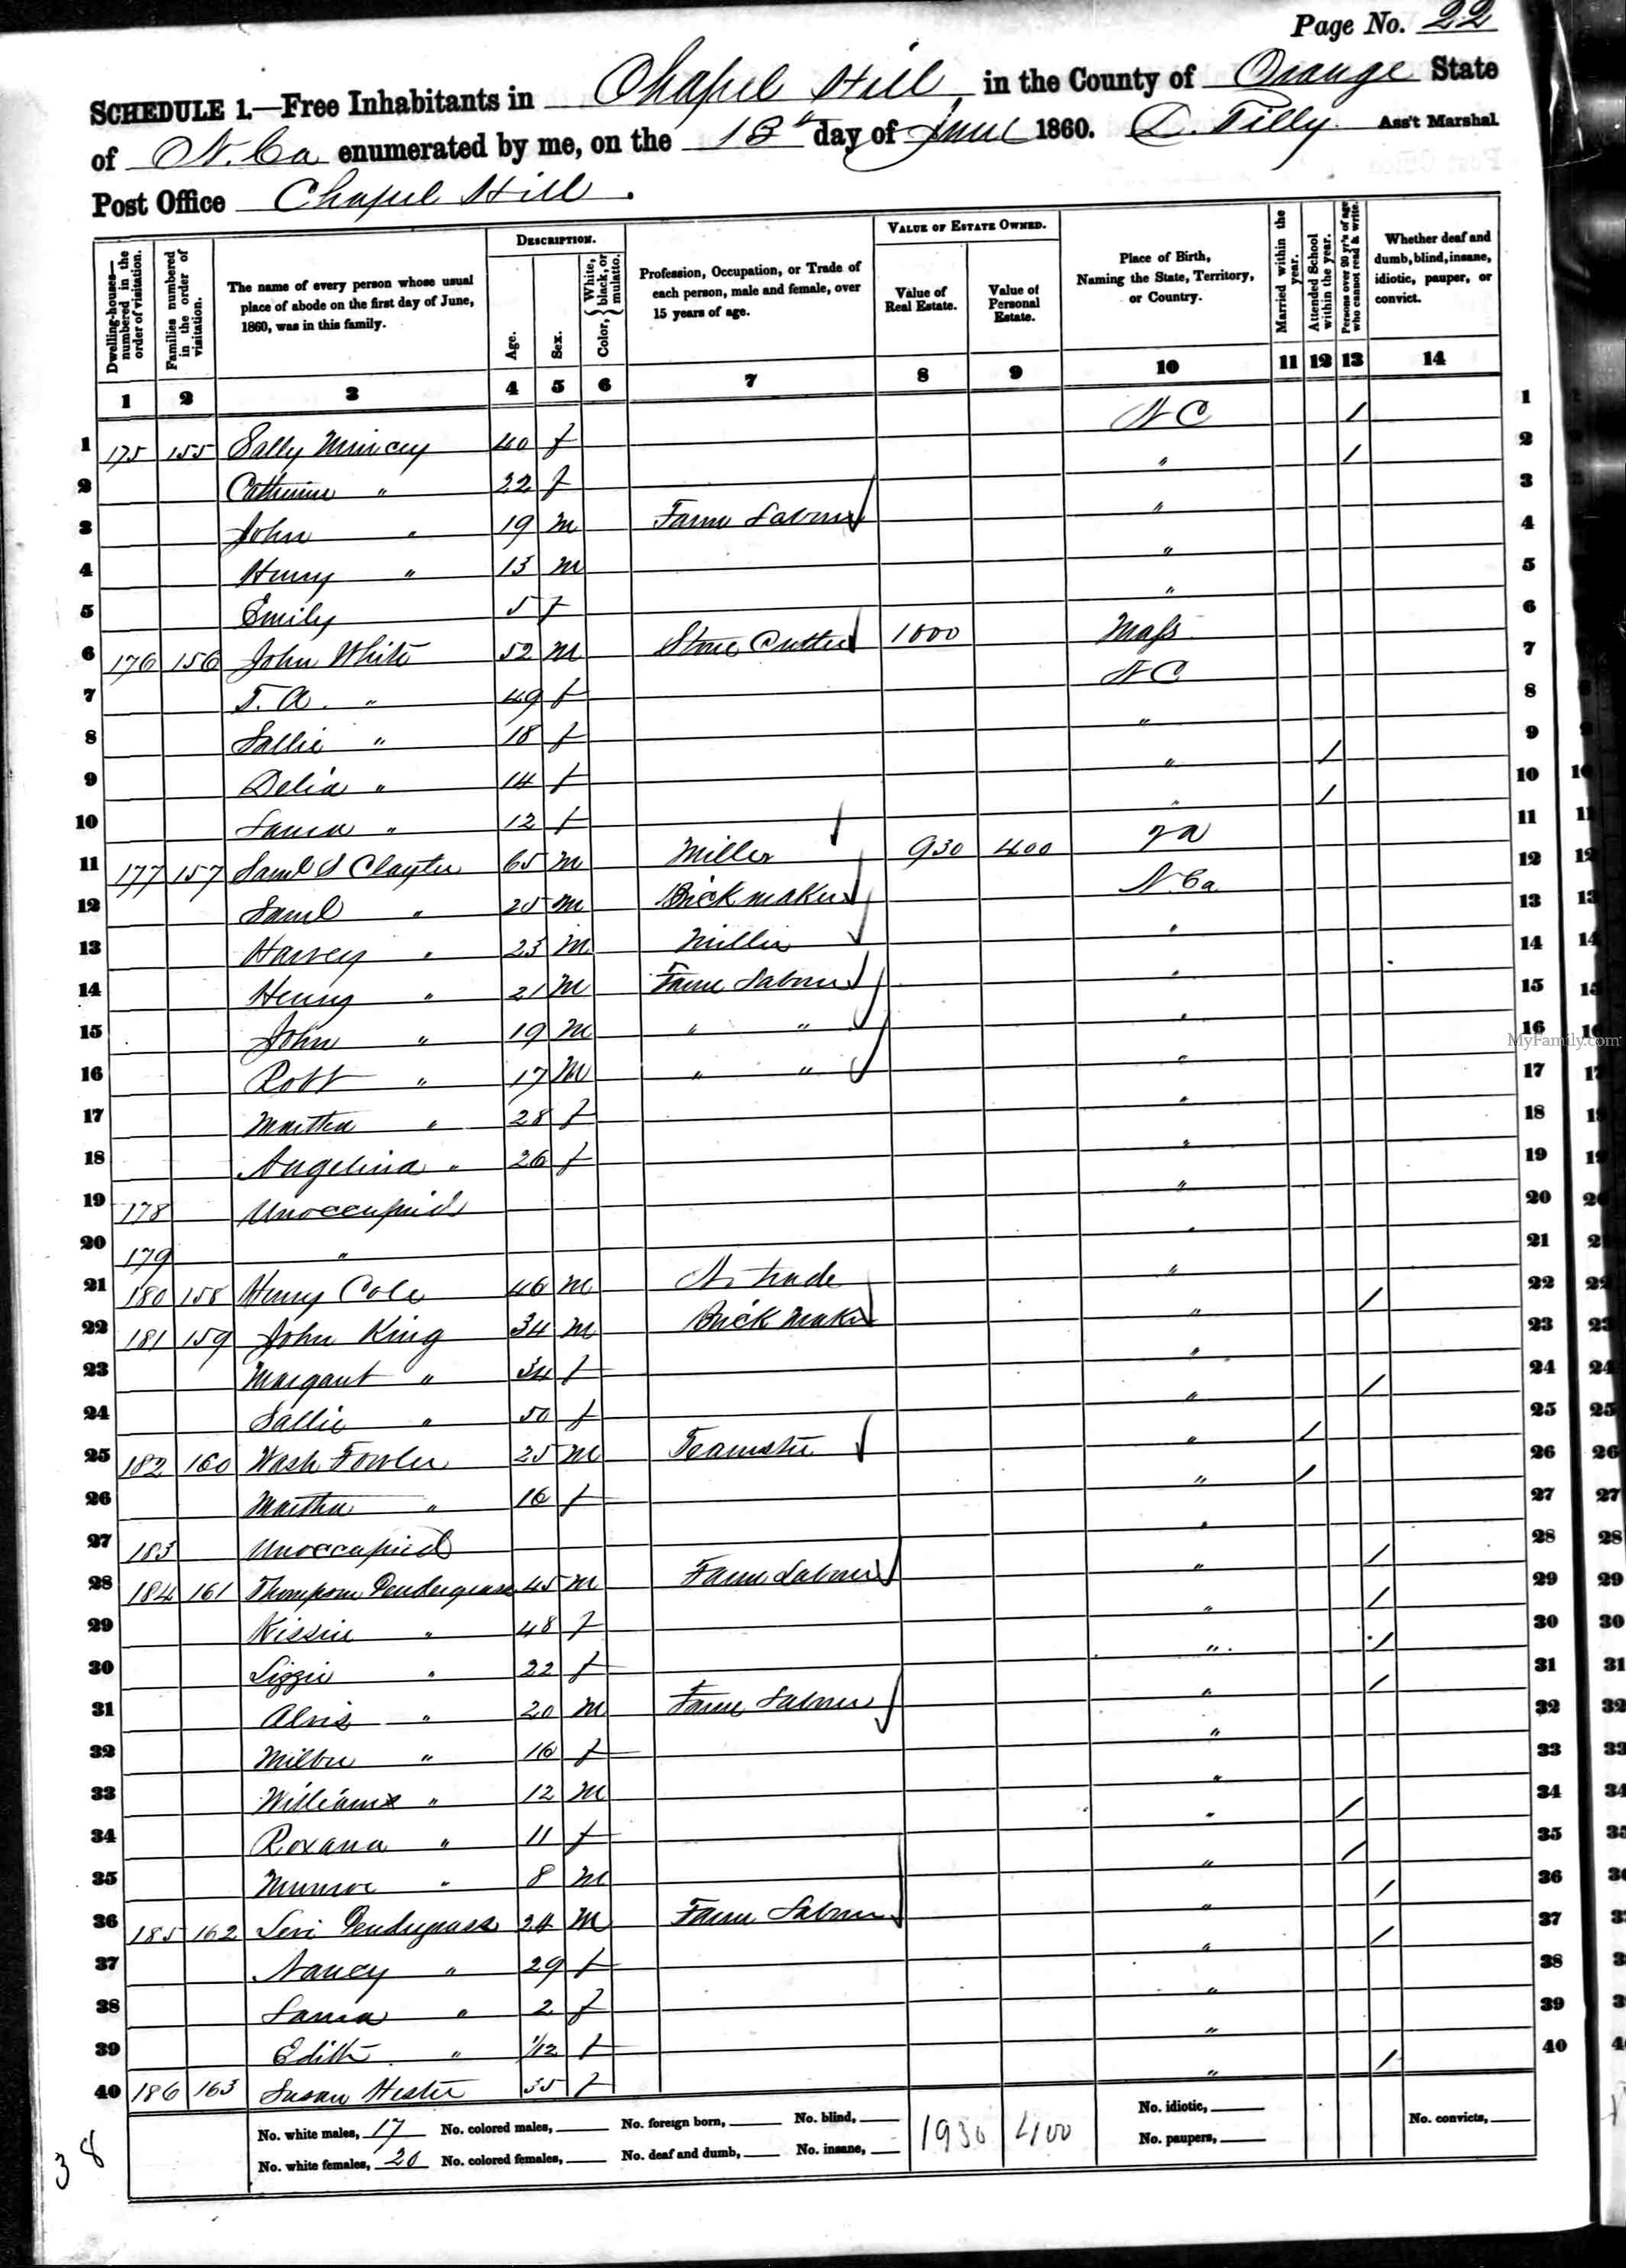 Page No. 22
SCHEDULE 1.—Free Inhabitants in Chapel Hill in the County of Orange State
of N. Ca enumerated by me, on the 13" day of June 1860. D. Tilly Ass't Marshal
Post Office Chapel Hill.
Dwelling-houses—numbered in the order of visitation.
Families numbered in the order of visitation.
The name of every person whose usual place of abode on the first day of June, 1860, was in this family.
DESCRIPTION.
Age.
Sex.
Color, { White, black, or mulatto.
Profession, Occupation, or Trade of each person, male and female, over 15 years of age.
VALUE OF ESTATE OWNED.
Value of Real Estate.
Value of Personal Estate.
Place of Birth, Naming the State, Territory, or Country.
Married within the year.
Attended School within the year.
Persons over 20 y'rs of age who cannot read & write.
Whether deaf and dumb, blind, insane, idiotic, pauper, or convict.
1 2 3 4 5 6 7 8 9 10 11 12 13 14
1 175 155 Sally Mincey 40 f N C / 1
2 Catherine " 22 f " / 2
3 John " 19 m Farm Laborer " 3
4 Henry " 13 m " 4
5 Emily 5 f " 5
6 176 156 John White 52 m Stone Cutter 1000 Mass 6
7 T. A. " 49 f N C 7
8 Sallie " 18 f " 8
9 Delia " 14 f " / 9
10 Laura " 12 f " / 10
11 177 157 Saml S Claytor 65 m Miller 930 400 Va 11
12 Saml " 25 m Brick maker N. Ca 12
13 Harvey " 23 m Miller " 13
14 Henry " 21 m Farm Laborer " 14
15 John " 19 m " " " 15
16 Robt " 17 m " " " 16
17 Martha " 28 f " 17
18 Angelina " 26 f " 18
19 178 Unoccupied " 19
20 179 " " 20
21 180 158 Henry Cole 46 m No trade " 21
22 181 159 John King 34 m Brick Maker " / 22
23 Margaret " 34 f " 23
24 Sallie " 50 f " / 24
25 182 160 Wash Fowler 25 m Teamster " / 25
26 Martha " 16 f " / 26
27 183 Unoccupied " 27
28 184 161 Thompson Pendergrass 45 m Farm Laborer " / 28
29 Kissie " 48 f " / 29
30 Lizzie " 22 f " / 30
31 Alvis " 20 m Farm Laborer " / 31
32 " 16 f " 32
33 William " 12 m " 33
34 Roxana " 11 f " / 34
35 Munroe " 8 m " / 35
36 185 162 Levi Pendergrass 24 m Farm Laborer " / 36
37 Nancy " 29 f " / 37
38 Laura " 2 f " 38
39 Edith " 1/12 f " 39
40 186 163 Susan Hester 35 f " / 40
No. white males, 17 No. colored males, No. foreign born, No. blind, 1930 400 No. idiotic, No. convicts,
No. white females, 20 No. colored females, No. deaf and dumb, No. insane, No. paupers,
38
MyFamily.com